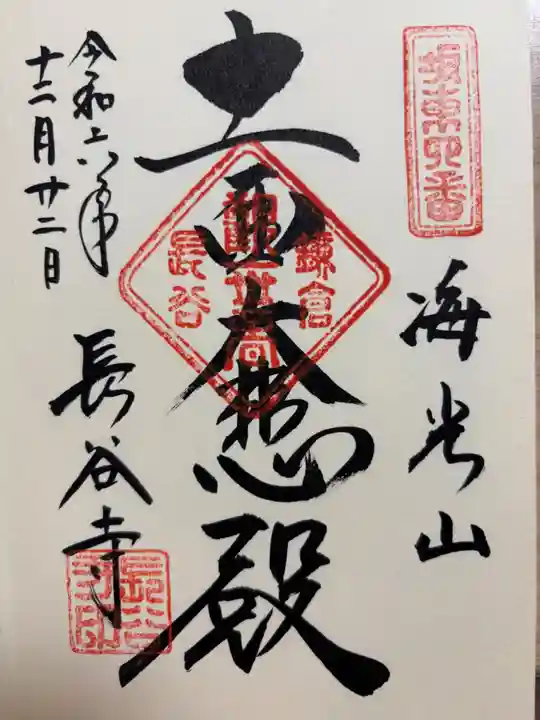 坂東四番
海光山
十一面大悲殿
鎌倉
觀世音
長谷
令和六年
十二月廿二日
長谷寺
長谷
寺印